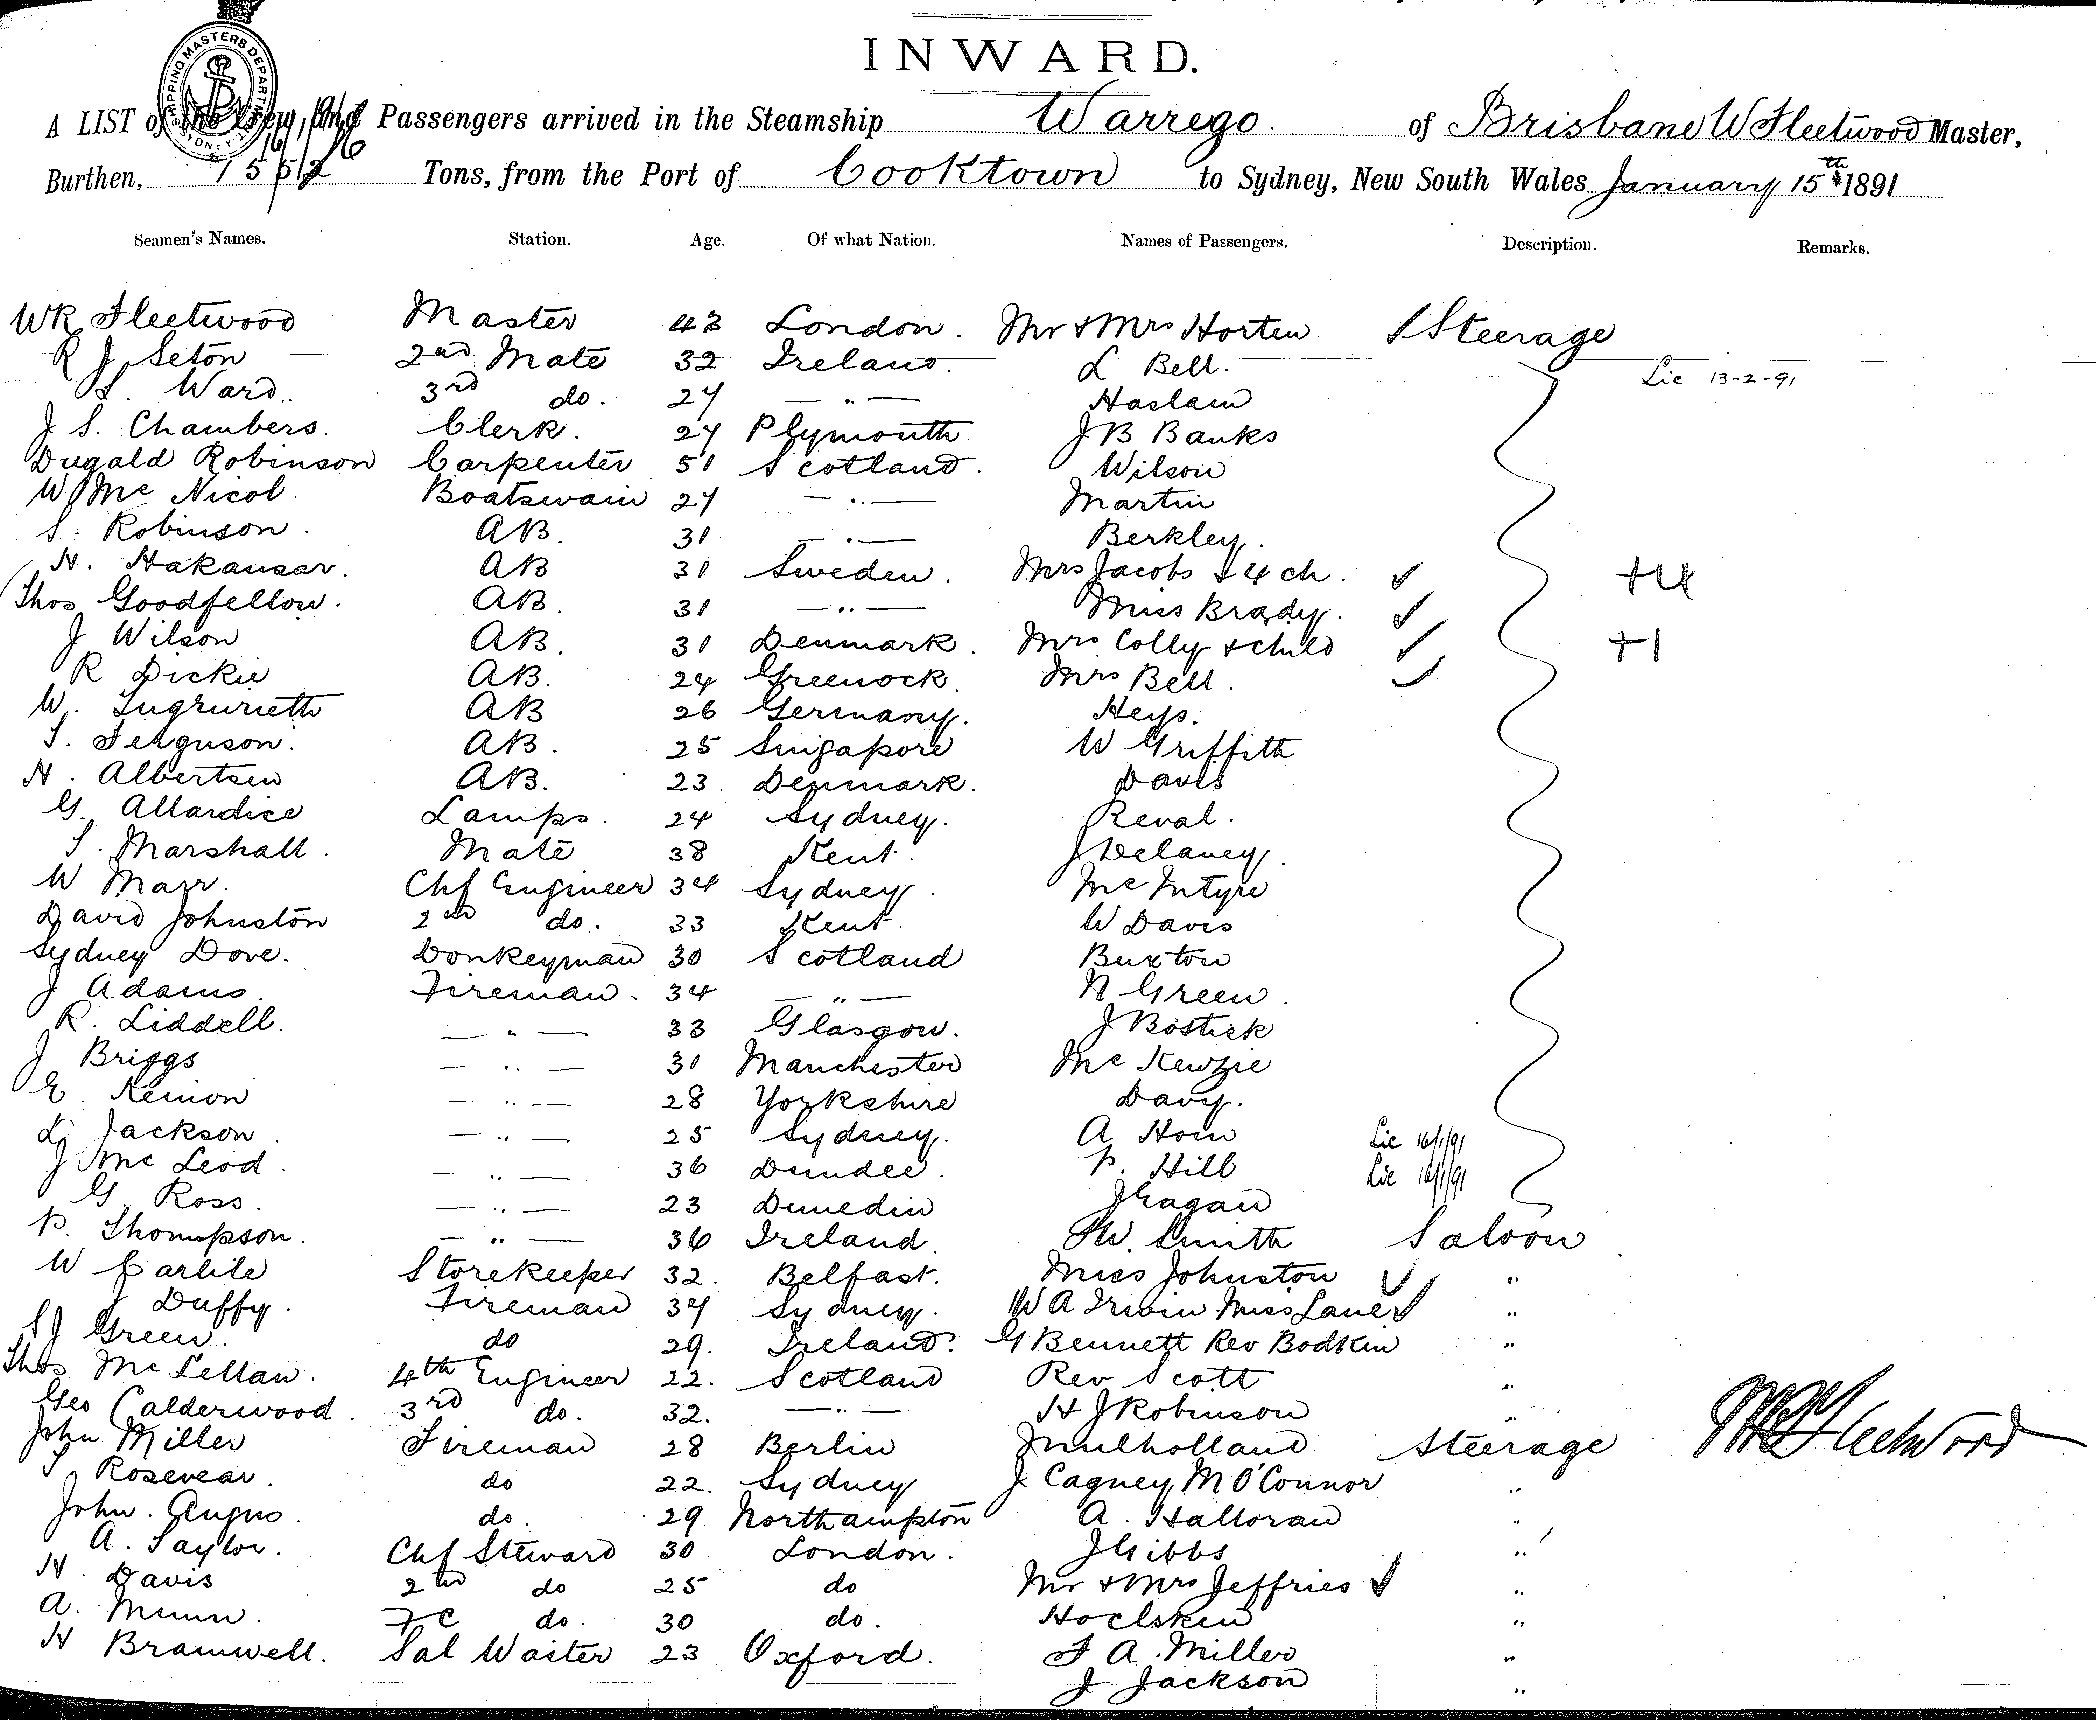 INWARD.
SHIPPING MASTERS DEPARTMENT SYDNEY
A LIST of the Crew and Passengers arrived in the Steamship Warrego of Brisbane W Fleetwood Master,
Burthen, Tons, from the Port of Cooktown to Sydney, New South Wales January 15th 1891
Seamen's Names. Station. Age. Of what Nation. Names of Passengers. Description. Remarks.
WR Fleetwood Master 43 London. Mr & Mrs Horten 1 Steerage
R J Seton 2nd Mate 32 Ireland. L Bell. Lic 13-2-91
Ward. 3rd do. 27 — " — Haslam
J S. Chambers. Clerk. 27 Plymouth J B Banks
Dugald Robinson Carpenter 51 Scotland. Wilson
W Mc Nicol Boatswain 27 — " — Martin
S. Robinson. AB. 31 — " — Berkley.
H. Hakansar. AB 31 Sweden. Mrs Jacobs & 4 ch. +4
Thos Goodfellow. AB. 31 — " — Miss Brady.
J Wilson AB. 31 Denmark. Mrs Colly & child +1
R Dickie AB. 24 Greenock. Mrs Bell.
W. AB 26 Germany. Heys.
T. Ferguson. AB. 25 Singapore W Griffith
H. Albertsen AB. 23 Denmark. Davis
G. Allardice Lamps. 24 Sydney. Reval.
T. Marshall. Mate 38 Kent. J Delaney.
W Marr. Chf Engineer 34 Sydney. Mc Intyre
David Johnston 2nd do. 33 Kent. W Davis
Sydney Dove. Donkeyman 30 Scotland Buxton
J Adams Fireman. 34 — " — N Green.
R. Liddell. — " — 33 Glasgow. J Bostick
J Briggs — " — 31 Manchester Mc Kenzie
E. Keinon — " — 28 Yorkshire Davy.
L. Jackson — " — 25 Sydney. A Horn Lic 16/1/91
J Mc Leod. — " — 36 Dundee. P. Hill Lic 16/1/91
G. Ross. — " — 23 Dunedin J Eagan
P. Thompson. — " — 36 Ireland. W. Smith Saloon
W Carlile Storekeeper 32. Belfast. Miss Johnston "
J Duffy. Fireman 37 Sydney. W A Irwin Miss Lane "
S J Green. do 29. Ireland. G Bennett Rev Bodkin "
Thos Mc Lellan. 4th Engineer 22. Scotland Rev Scott "
Geo Calderwood. 3rd do. 32. — " — H J Robinson "
John Miller Fireman 28 Berlin J Mulholland Steerage WR Fleetwood
T Rosevear. do 22. Sydney J Cagney, M O'Connor "
John. Angus. do. 29 Northampton A. Halloran "
A. Taylor. Chf Steward 30 London. J Gibbs "
H Davis 2nd do 25 do Mr & Mrs Jeffries "
A. Munn. FC do. 30 do. Hoelsken "
H Bramwell. Sal Waiter 23 Oxford. F A. Miller "
J Jackson "